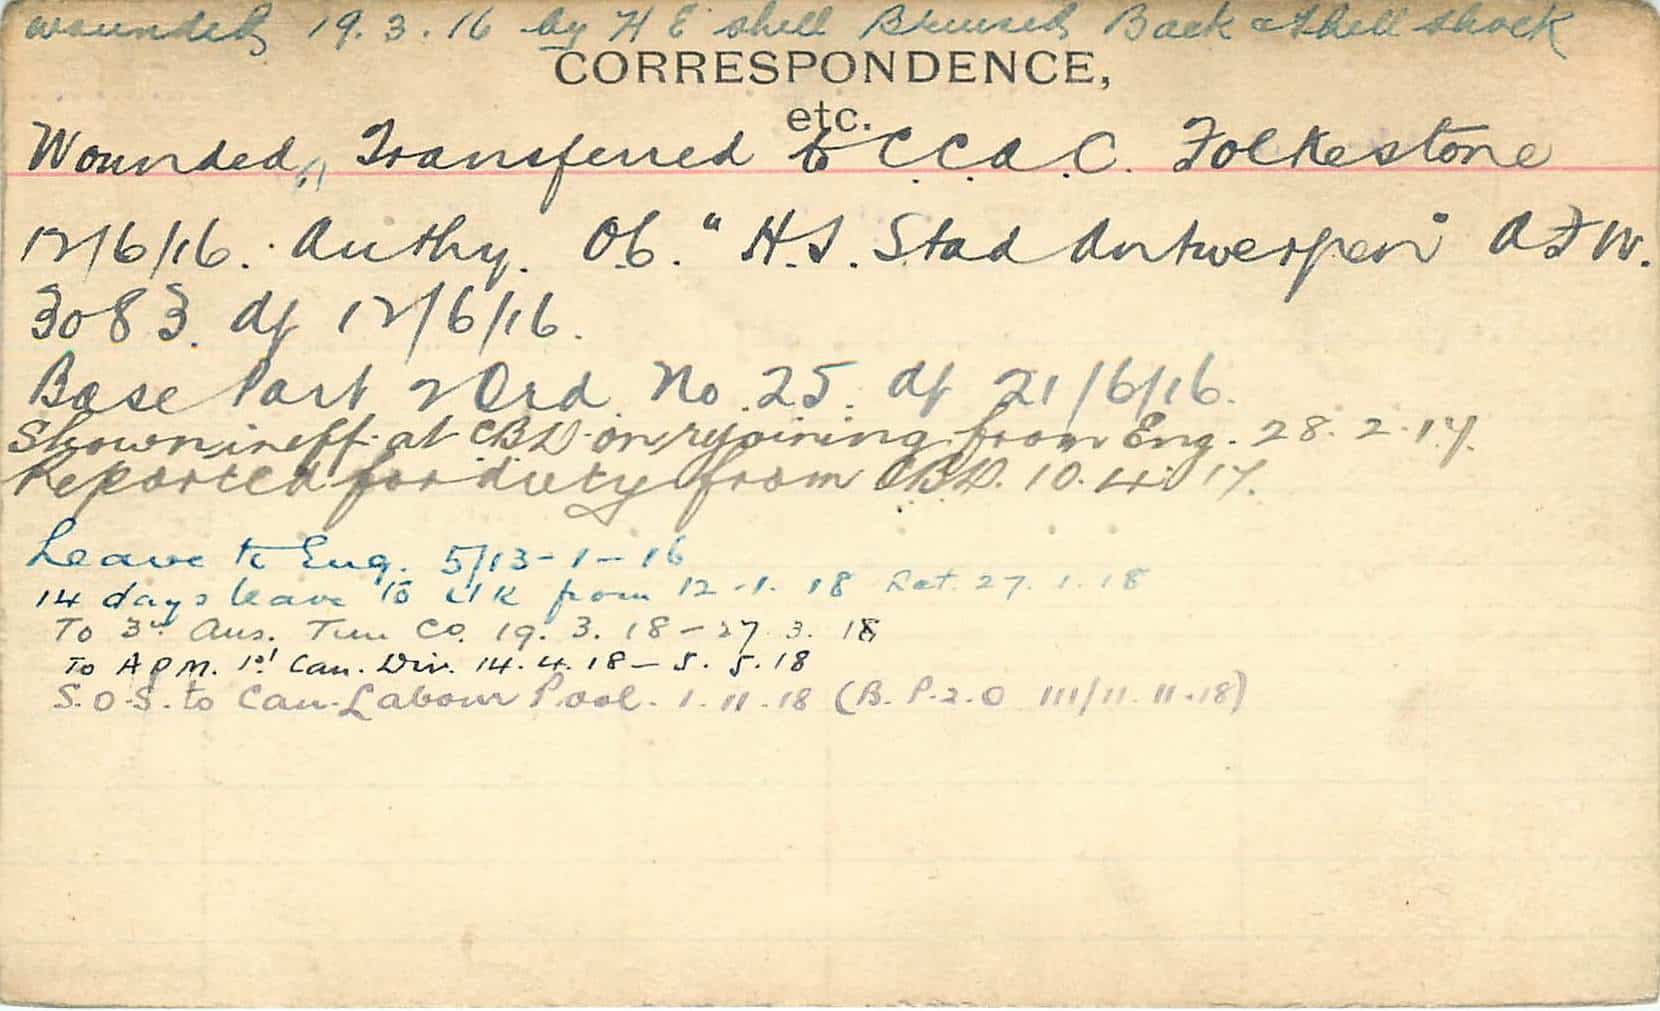 Wounded 19.3.16 by H E shell Bruised Back & Shell shock
CORRESPONDENCE,
etc.
Wounded, Transferred to C.C.A.C. Folkestone
12/6/16. Authy. O.C. "H.S. Stad Antwerpen" A F W.
3083. df 12/6/16.
Base Part 2 Ord. No. 25. df 21/6/16.
Shown ineff. at CBD on rejoining from Eng. 28.2.17.
Reported for duty from CBD. 10.4.17.
Leave to Eng. 5/13-1-16
14 days leave to UK from 12-1.18 Ret. 27.1.18
To 3rd Aus. Tun Co. 19.3.18-27.3.18
To A P M. 1st Can. Div. 14.4.18-5.5.18
S.O.S. to Can. Labour Pool. 1.11.18 (B.P.2.O 111/11.11.18)